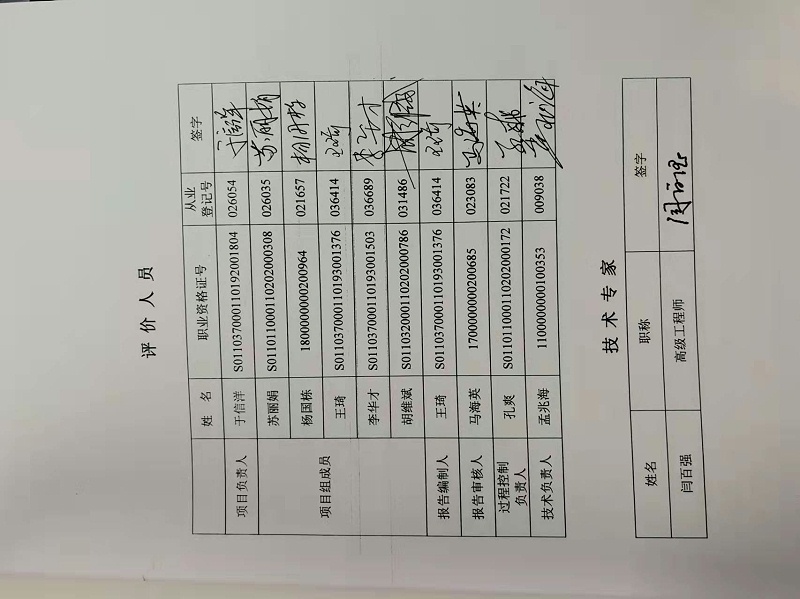 评价人员
姓名 职业资格证号 从业登记号 签字
项目负责人 于信洋 S011037000110192001804 026054 于信洋
项目组成员 苏丽娟 S011011000110202000308 026035 苏丽娟
杨国栋 1800000000200964 021657
王琦 S011037000110193001376 036414 王琦
李华才 S011037000110193001503 036689 李华才
胡维斌 S011032000110202000786 031486
报告编制人 王琦 S011037000110193001376 036414 王琦
报告审核人 马海英 1700000000200685 023083 马海英
过程控制负责人 孔爽 S011011000110202000172 021722
技术负责人 孟兆海 1100000000100353 009038
技术专家
姓名 职称 签字
闫百强 高级工程师